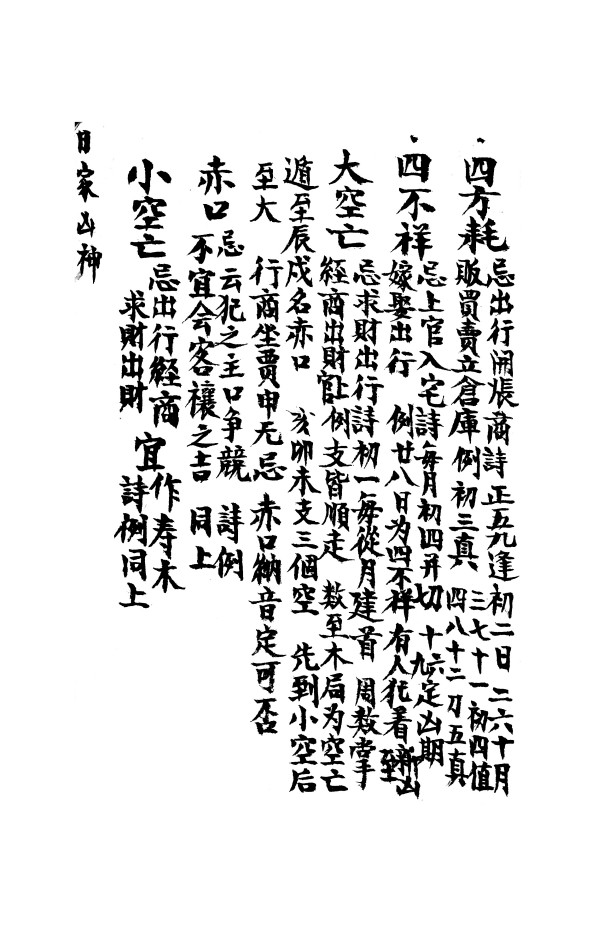 四方耗
忌出行開張商詩 正五九逢初二日 二六十月
販買賣立倉庫例 初三真 三七十一初四值
四八十二刀五真
四不祥
忌上官入宅詩 每月初四并初七 十六十九定凶期
嫁娶出行 例 廿八日为四不祥 有人犯着至凶
大空亡
忌求財出行詩 初一每從月建首 周数掌
經商出財 例 支皆順走 数至木局为空亡
遁至辰戌名赤口 亥卯未支三個空 先到小空后
至大 行商坐賈申无忌 赤口納音定可否
赤口
忌云犯之主口争競 詩例
不宜会客禳之吉 同上
小空亡
忌出行經商 宜作寿木
求財出財 詩例同上
日家凶神